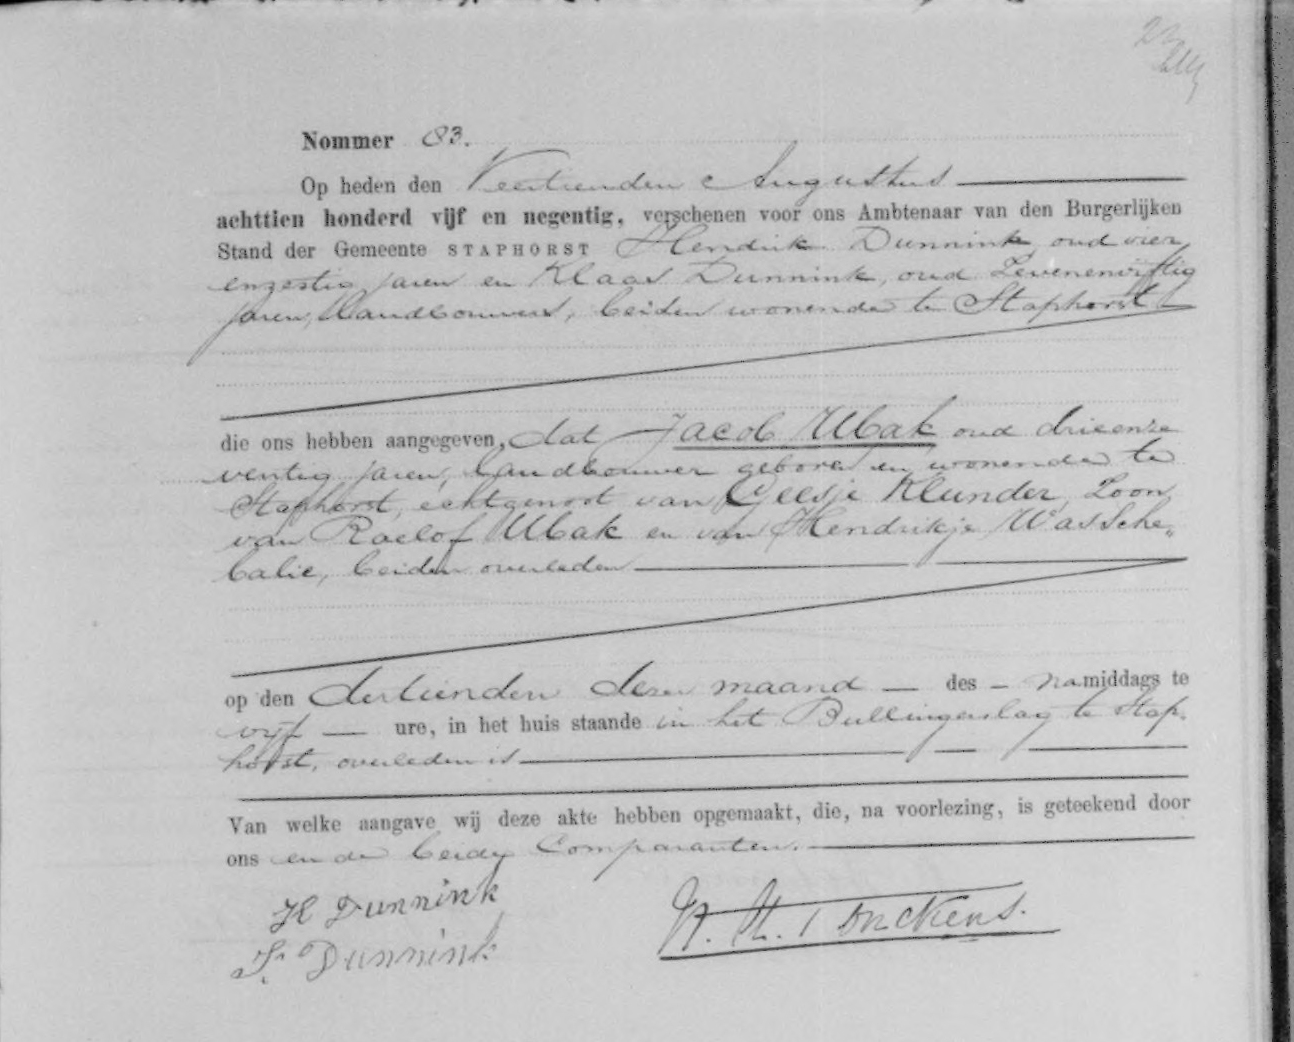 Nommer 83.
Op heden den Veertienden Augustus
achttien honderd vijf en negentig, verschenen voor ons Ambtenaar van den Burgerlijken
Stand der Gemeente STAPHORST Hendrik Dunnink, oud vier
enzestig jaren en Klaas Dunnink, oud Zevenenvijftig
jaren, landbouwers, beiden wonende te Staphorst
die ons hebben aangegeven, dat Jacob Mbak oud drieenze
ventig jaren, landbouwer geboren en wonende te
Staphorst, echtgenoot van Geesje Klunder, Zoon
van Roelof Mbak en van Hendrikje Wassche„
balie, beiden overleden
op den dertienden dezer maand — des – namiddags te
vijf — ure, in het huis staande in het Bullingerslag te Stap„
horst, overleden is
Van welke aangave wij deze akte hebben opgemaakt, die, na voorlezing, is geteekend door
ons en de beide Comparanten.
H Dunnink
Dunnink